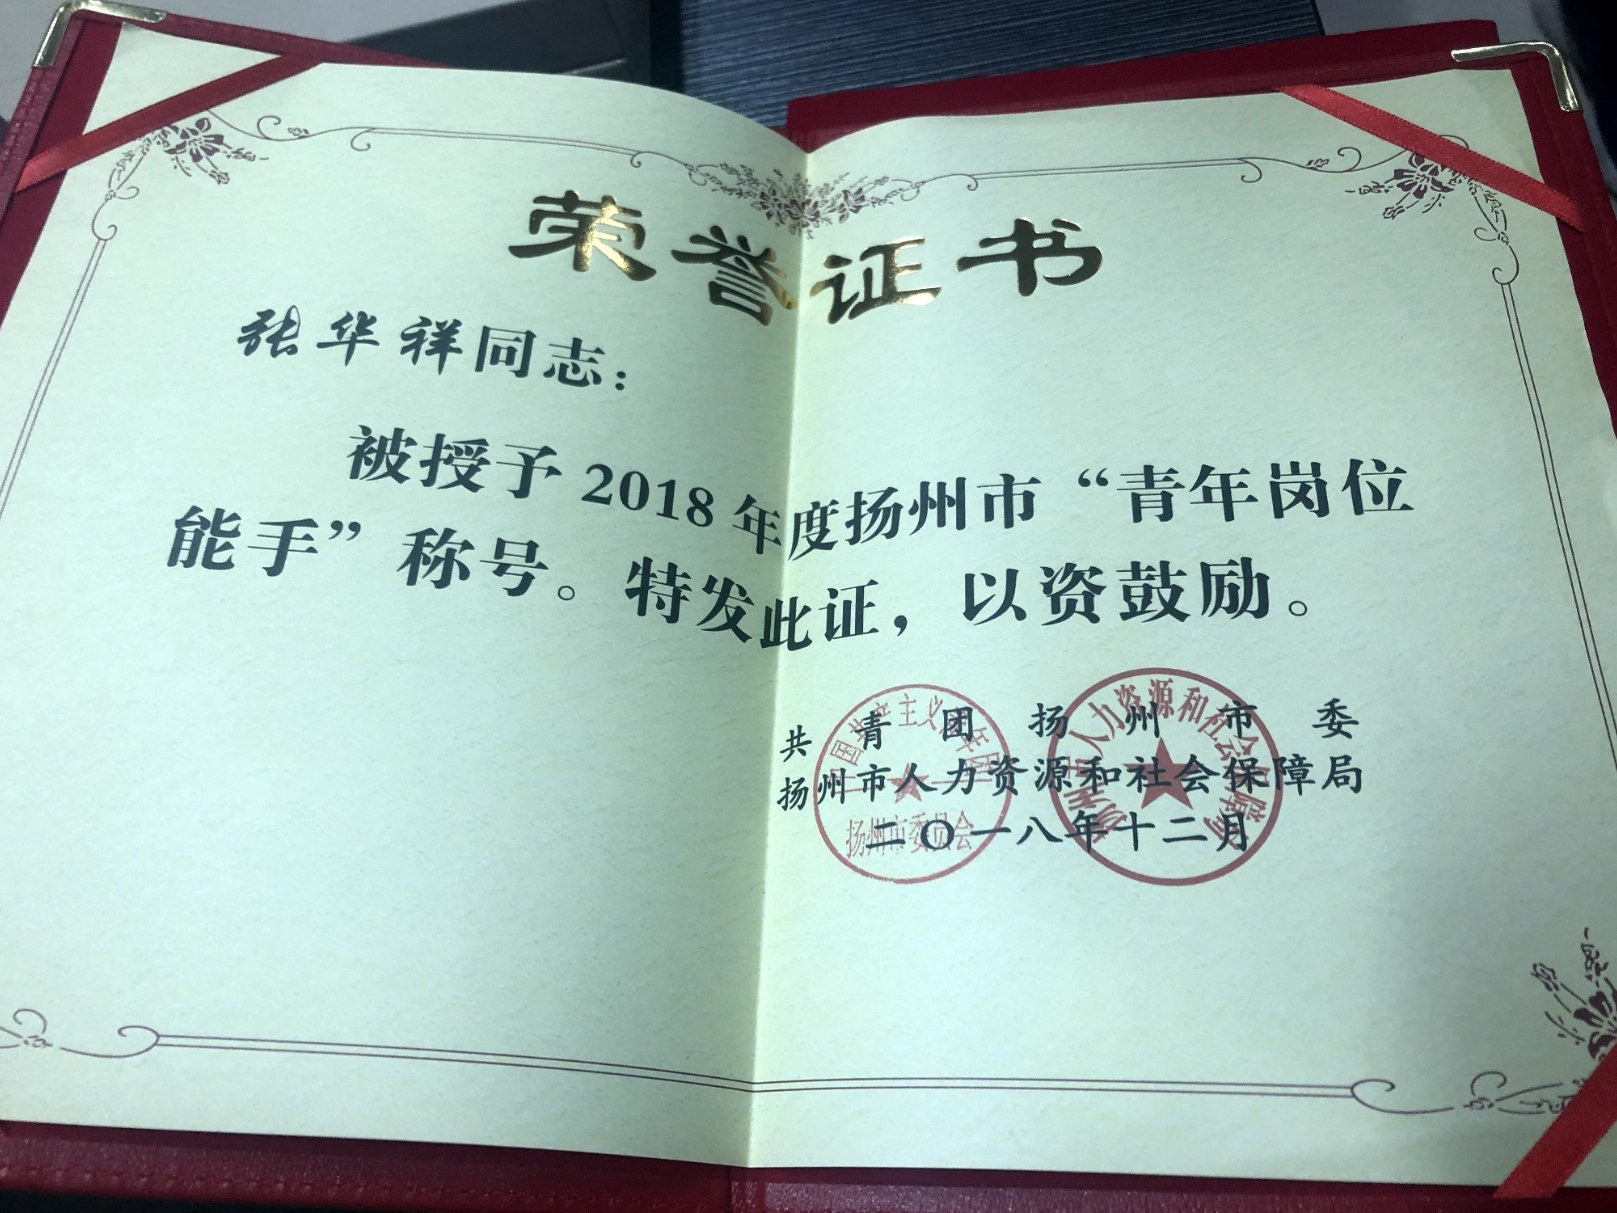 荣誉证书
张华祥同志：
被授予2018年度扬州市“青年岗位
能手”称号。特发此证，以资鼓励。
共青团扬州市委
扬州市人力资源和社会保障局
二〇一八年十二月
中国共产主义青年团
扬州市委员会
扬州市人力资源和社会保障局